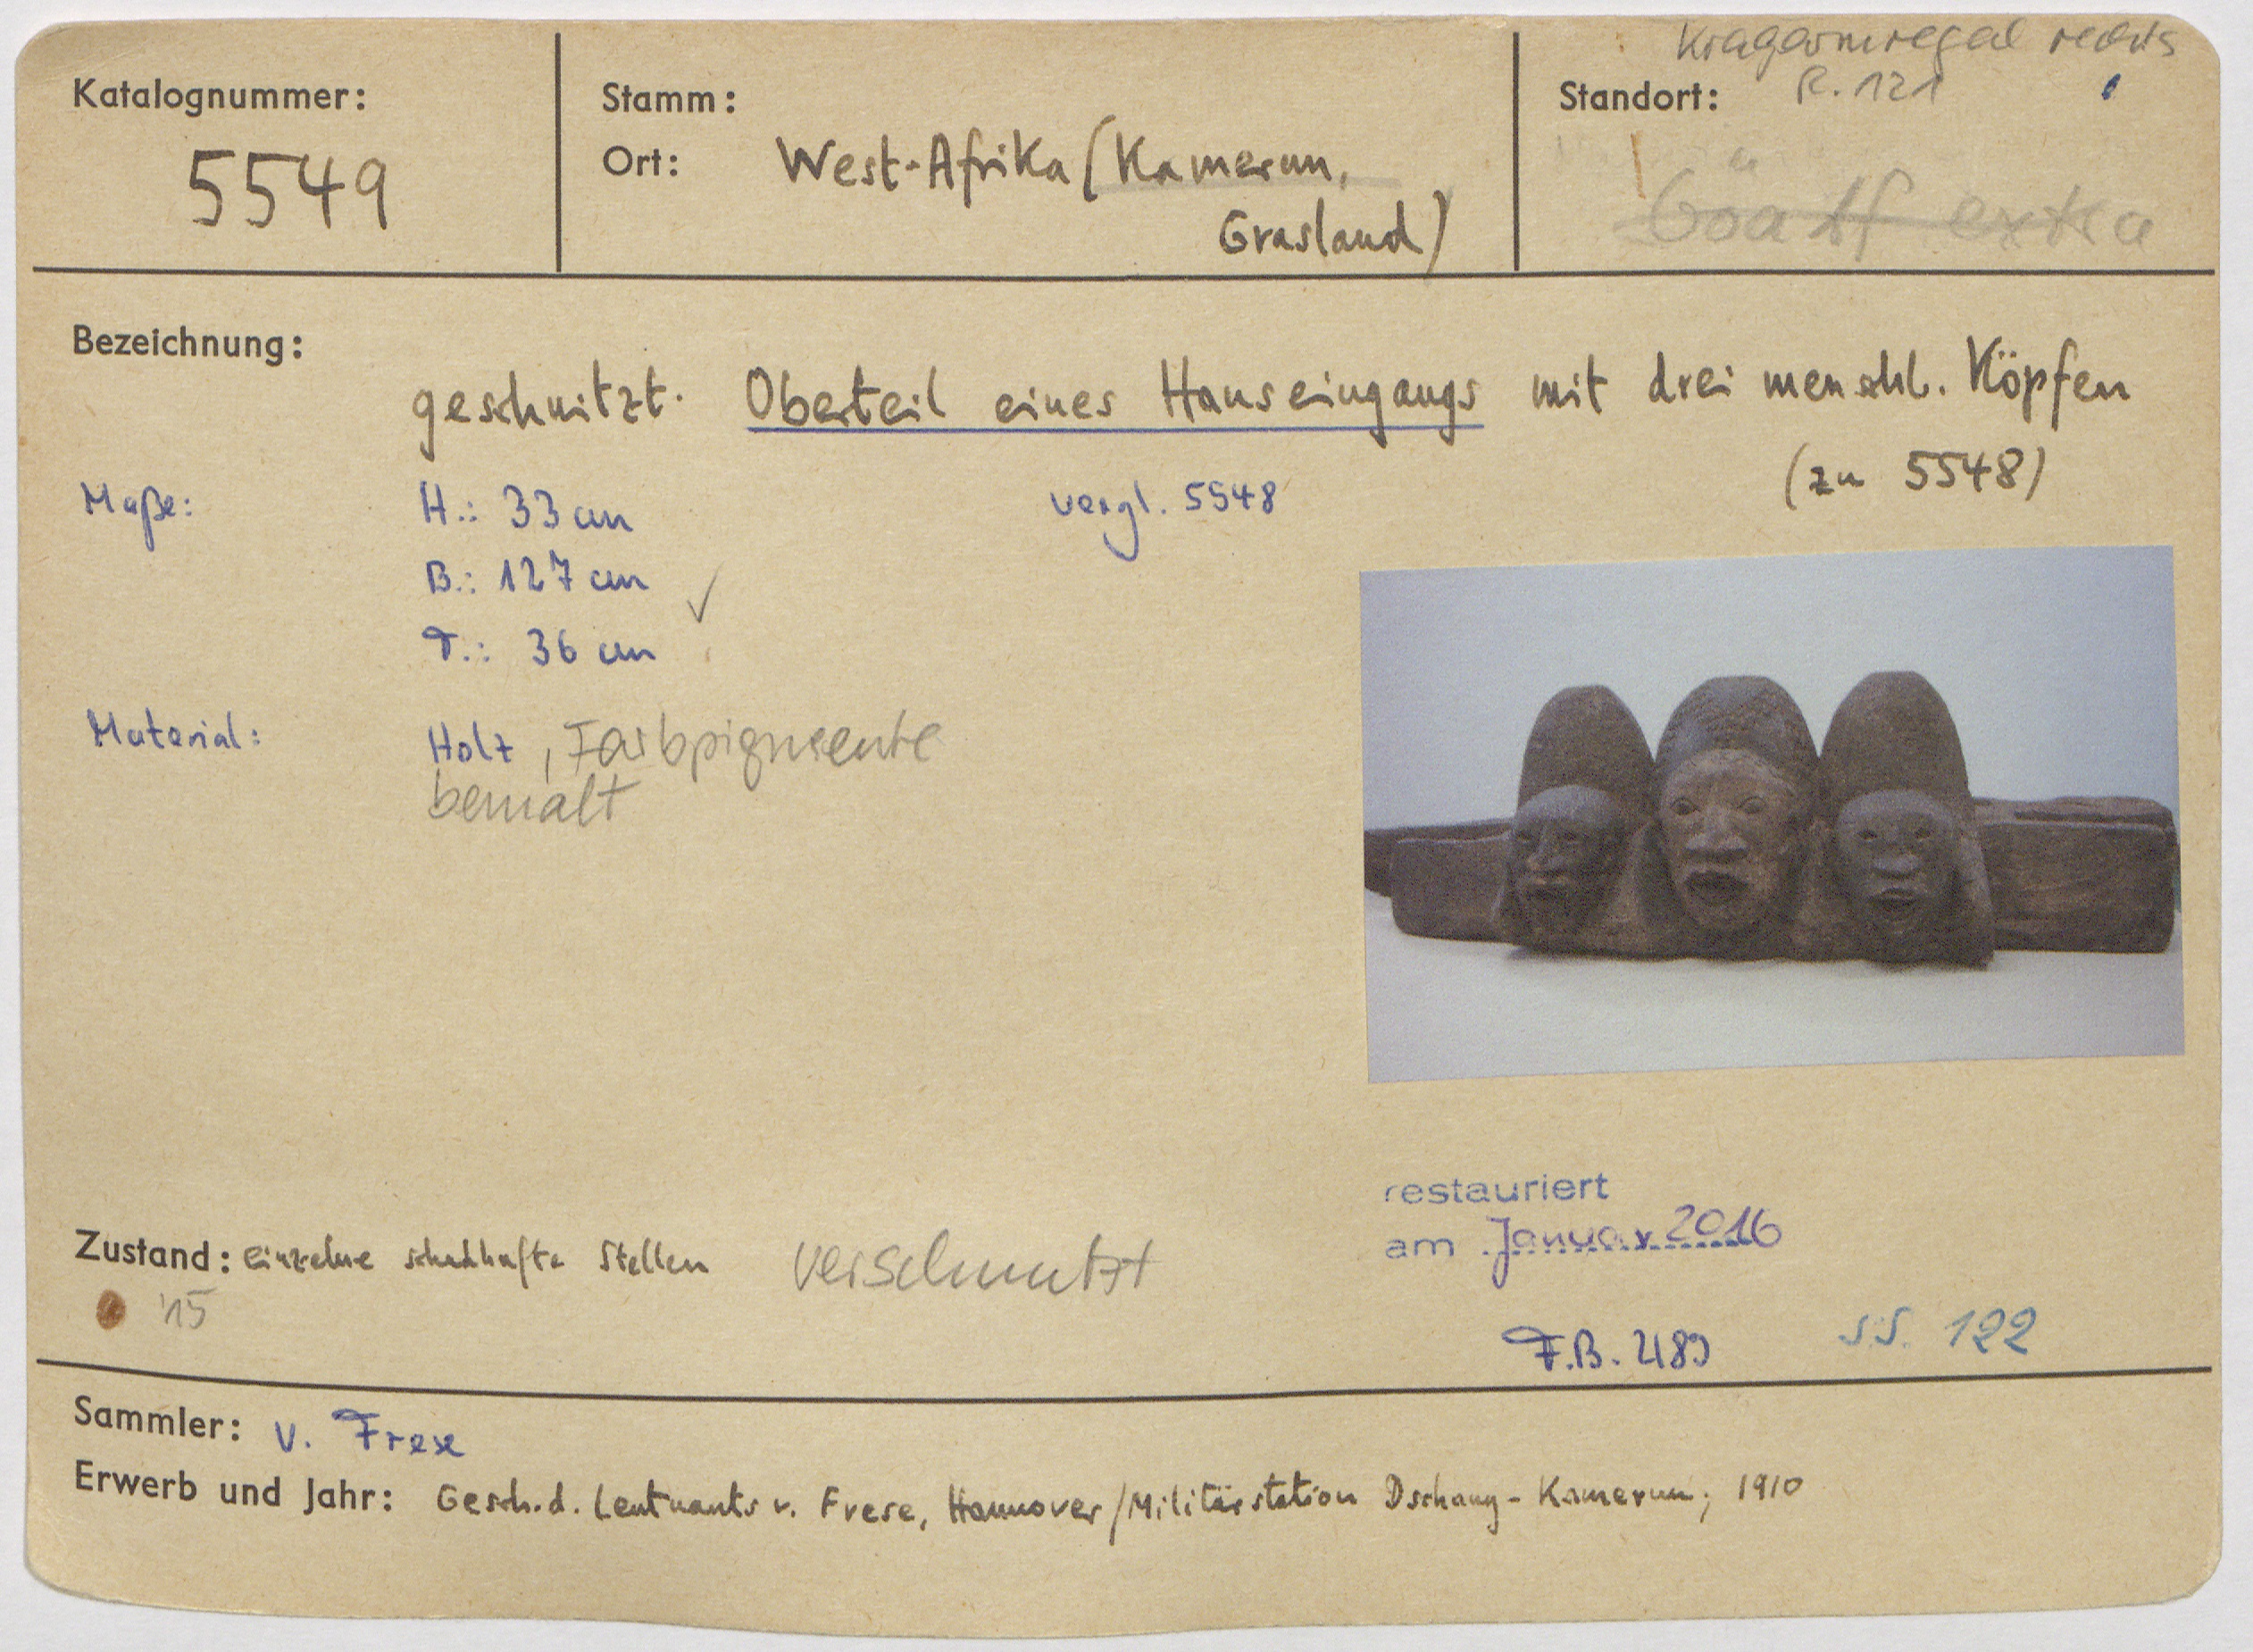 Katalognummer:
5549
Stamm:
Ort: West-Afrika (Kamerun,
Grasland)
Kragarmregal rechts
Standort: R. 121
extra
Bezeichnung:
geschnitzt. Oberteil eines Hauseingangs mit drei menschl. Köpfen
(zu 5548)
Maße: H.: 33 cm vergl. 5548
B.: 127 cm ✓
T.: 36 cm
Material: Holz, Farbpigmente
bemalt
restauriert
am Januar 2016
Zustand: einzelne schadhafte Stellen verschmutzt
'15
F.B. 2189 S.S. 122
Sammler: v. Frese
Erwerb und Jahr: Gesch. d. Leutnants v. Frese, Hannover/Militärstation Dschang-Kamerun; 1910